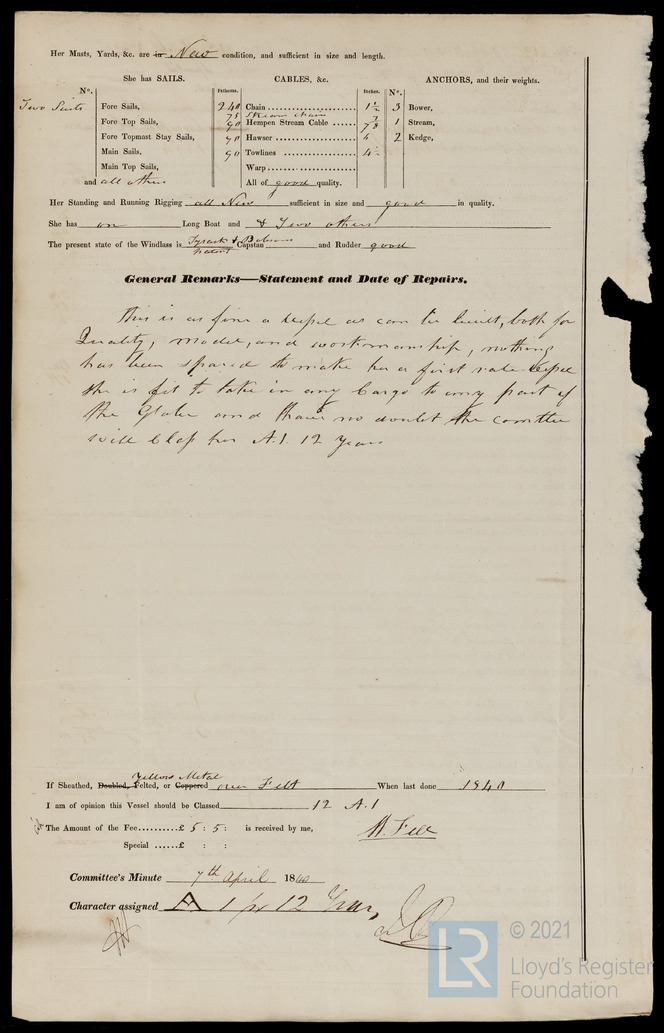 Her Masts, Yards, &c. are in New condition, and sufficient in size and length.
She has SAILS. CABLES, &c. ANCHORS, and their weights.
No. Fathoms. Inches. No.
Two Suits Fore Sails, 240 Chain 1 1/2 3 Bower,
75 Stream chain
Fore Top Sails, 90 Hempen Stream Cable 7 1 Stream,
Fore Topmast Stay Sails, 90 Hawser 2 Kedge,
Main Sails, 90 Towlines 4
Main Top Sails, Warp
and all others All of good quality.
Her Standing and Running Rigging all New sufficient in size and good in quality.
She has one Long Boat and & Two others
The present state of the Windlass is Capstan and Rudder good
patent
General Remarks—Statement and Date of Repairs.
This is as fine a Vessel as can be built, both for
Quality, model, and workmanship, nothing
has been spared to make her a first rate Vessel
She is fit to take in any Cargo to any part of
the Globe and thair no doubt the comttee
will Class her A.1. 12 Years
Yellow Metal
If Sheathed, Doubled, Felted, or Coppered over Felt When last done 1840
I am of opinion this Vessel should be Classed 12 A.1
The Amount of the Fee £ 5 : 5 : is received by me,
Special £ : :
Committee's Minute 7th April 1840
Character assigned A 1 for 12 Years
LR
© 2021
Lloyd's Register
Foundation